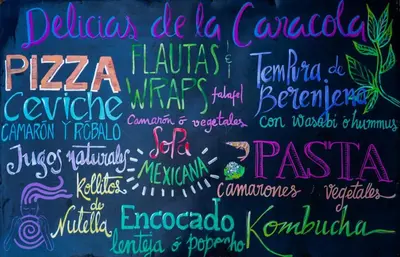 Delicias de la Caracola
PIZZA
Ceviche
CAMARÓN Y RÓBALO
Jugos naturales
Rollitos
de
Nutella
FLAUTAS &
WRAPS falafel
Camarón ó vegetales
SOPA
MEXICANA
Encocado
lenteja ó
Tempura de
Berenjena
con Wasabi ó hummus
PASTA
camarones vegetales
Kombucha